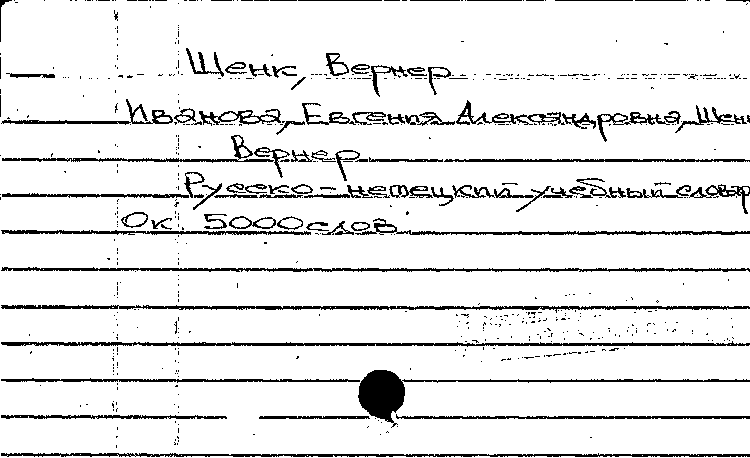 Шенк, Вернер
Иванова, Евгения Александровна, Шенк
Вернер
Русско-немецкий учебный словар
Ок. 5000 слов